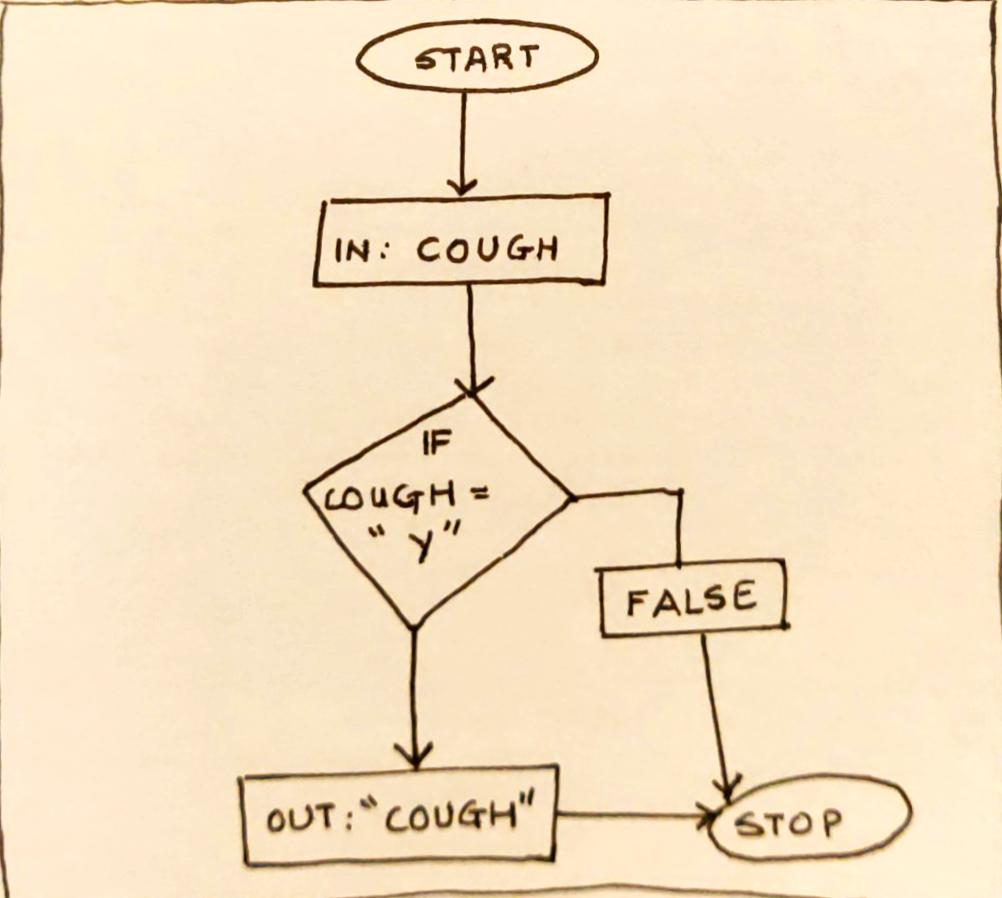 START
IN: COUGH
IF
COUGH =
"Y"
FALSE
OUT: "COUGH"
STOP